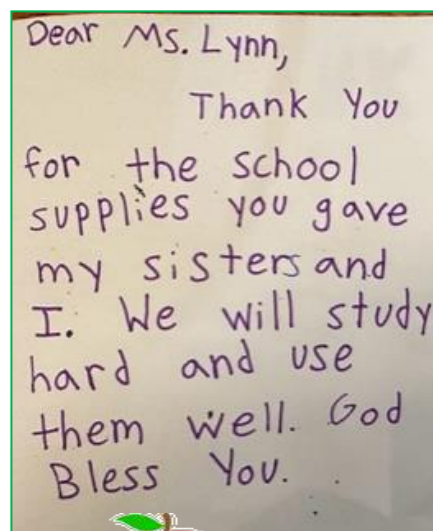 Dear Ms. Lynn,
Thank You
for the school
supplies you gave
my sisters and
I. We will study
hard and use
them well. God
Bless You.